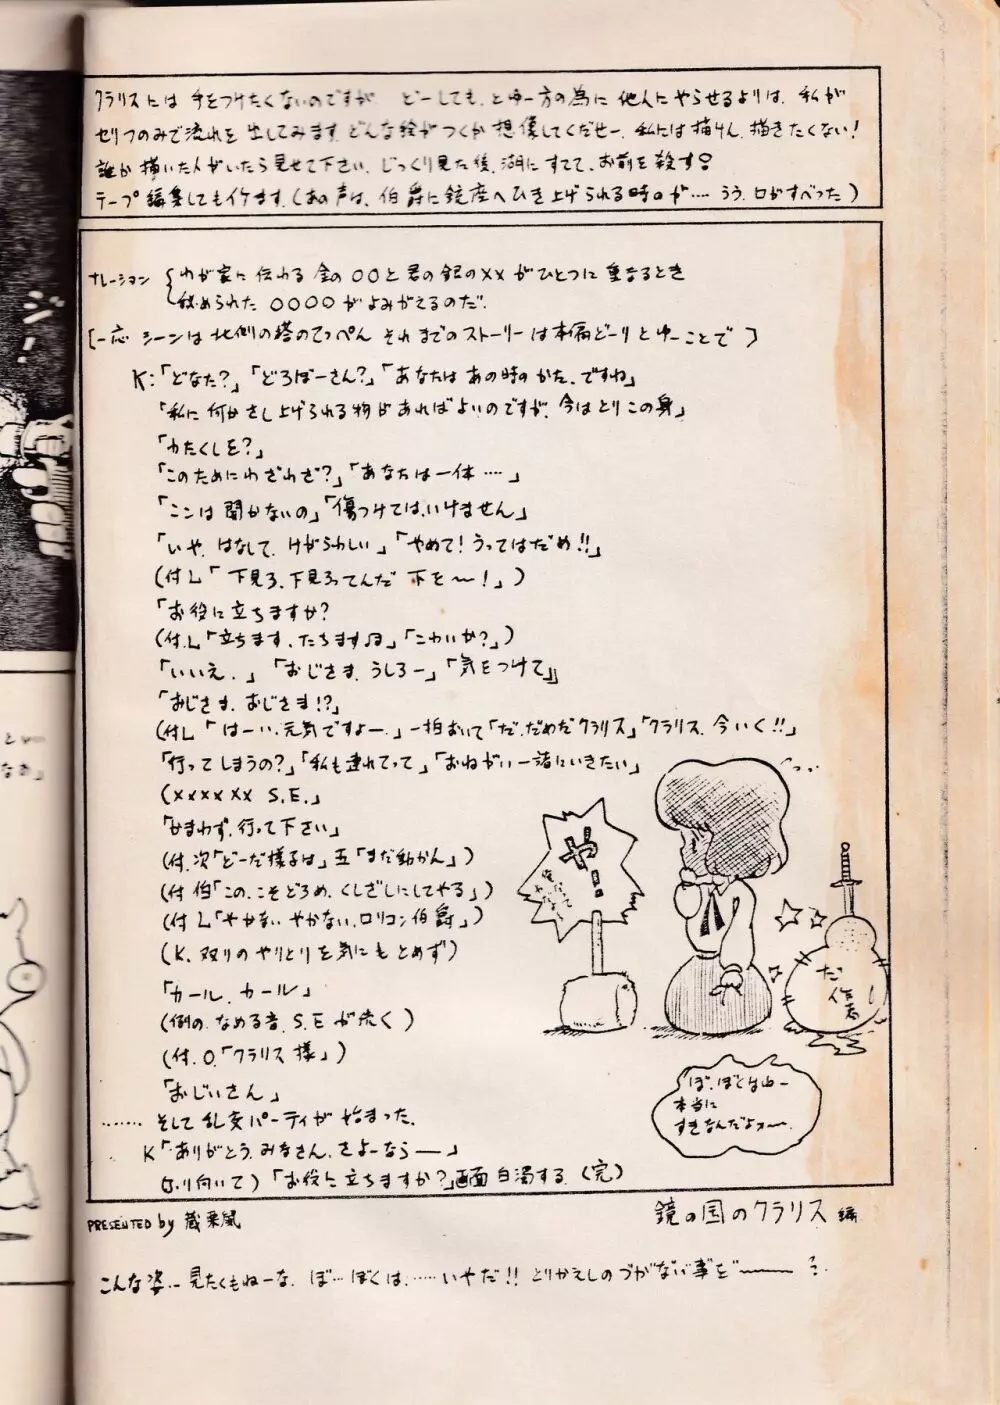 クラリスには 手をつけたくないのですが どーしても、とゆー方の為に 他人にやらせるよりは、私が
セリフのみで流れを 出してみます。どんな絵がつくか 想像してくだせー、私には描けん、描きたくない!
誰か 描いた人がいたら見せて下さい、じっくり見た後、湖にすてて、お前を殺す
テープ編集してもイケます。(あの声は、伯爵に鏡座へひき上げられる時のが‥‥ うう、口がすべった)
ナレーション わが家に伝わる 金の○○と君の銀の××がひとつに重なるとき
秘められた ○○○○がよみがえるのだ。
[一応 シーンは北側の塔のてっぺん それまでのストーリーは本編どーりとゆーことで]
K:「どなた?」「どろぼーさん?」「あなたは あの時の かた、ですね」
「私に何かさし上げられる物があればよいのですが、今はとりこの身」
「わたくしを?」
「このためにわざわざ?」「あなたは一体‥‥」
「ここは 開かないの」「傷つけては、いけません」
「いや、はなして、けがらわしい」「やめて!うってはだめ!!」
(付L「下見ろ、下見ろってんだ 下を〜!」)
「お役に立ちますか?
(付.L「立ちます、たちます♫」「こわいか?」)
「いいえ.」 「おじさま、うしろー」「気をつけて」
「おじさま、おじさま!?」
(付L「はーい、元気ですよー.」一拍おいて「だ、だめだクラリス」「クラリス、今いく!!」
「行ってしまうの?」「私も連れてって」「おねがい一諸にいきたい」
(×××××× S.E.」
「かまわず、行って下さい」
(付.次「どーだ様子は」五「まだ動かん」)
(付 伯「この、こそどろめ、くしざしにしてやる」)
(付 L「やかない やかない、ロリコン伯爵」)
(K、双りのやりとりを気にもとめず)
「カール、カール」
(例の、なめる音、S.E が流く)
(付.O.「クラリス様」)
「おじいさん」
‥‥‥ そして 乱交パーティが 始まった。
K「ありがとう、みなさん、さよーならー」
(ふり向いて)「お役に立ちますか?」画面 白濁する。(完)
やー
だ
作者
「ぼ、ぼとなゆー
本当に
すきなんだよォ〜。
PRESENTED by 蔵栗鼠
鏡の国のクラリス 編
こんな姿‥見たくもねーな、ぼ‥ぼくは、‥‥いやだ!!とりかえしのつがない事を――